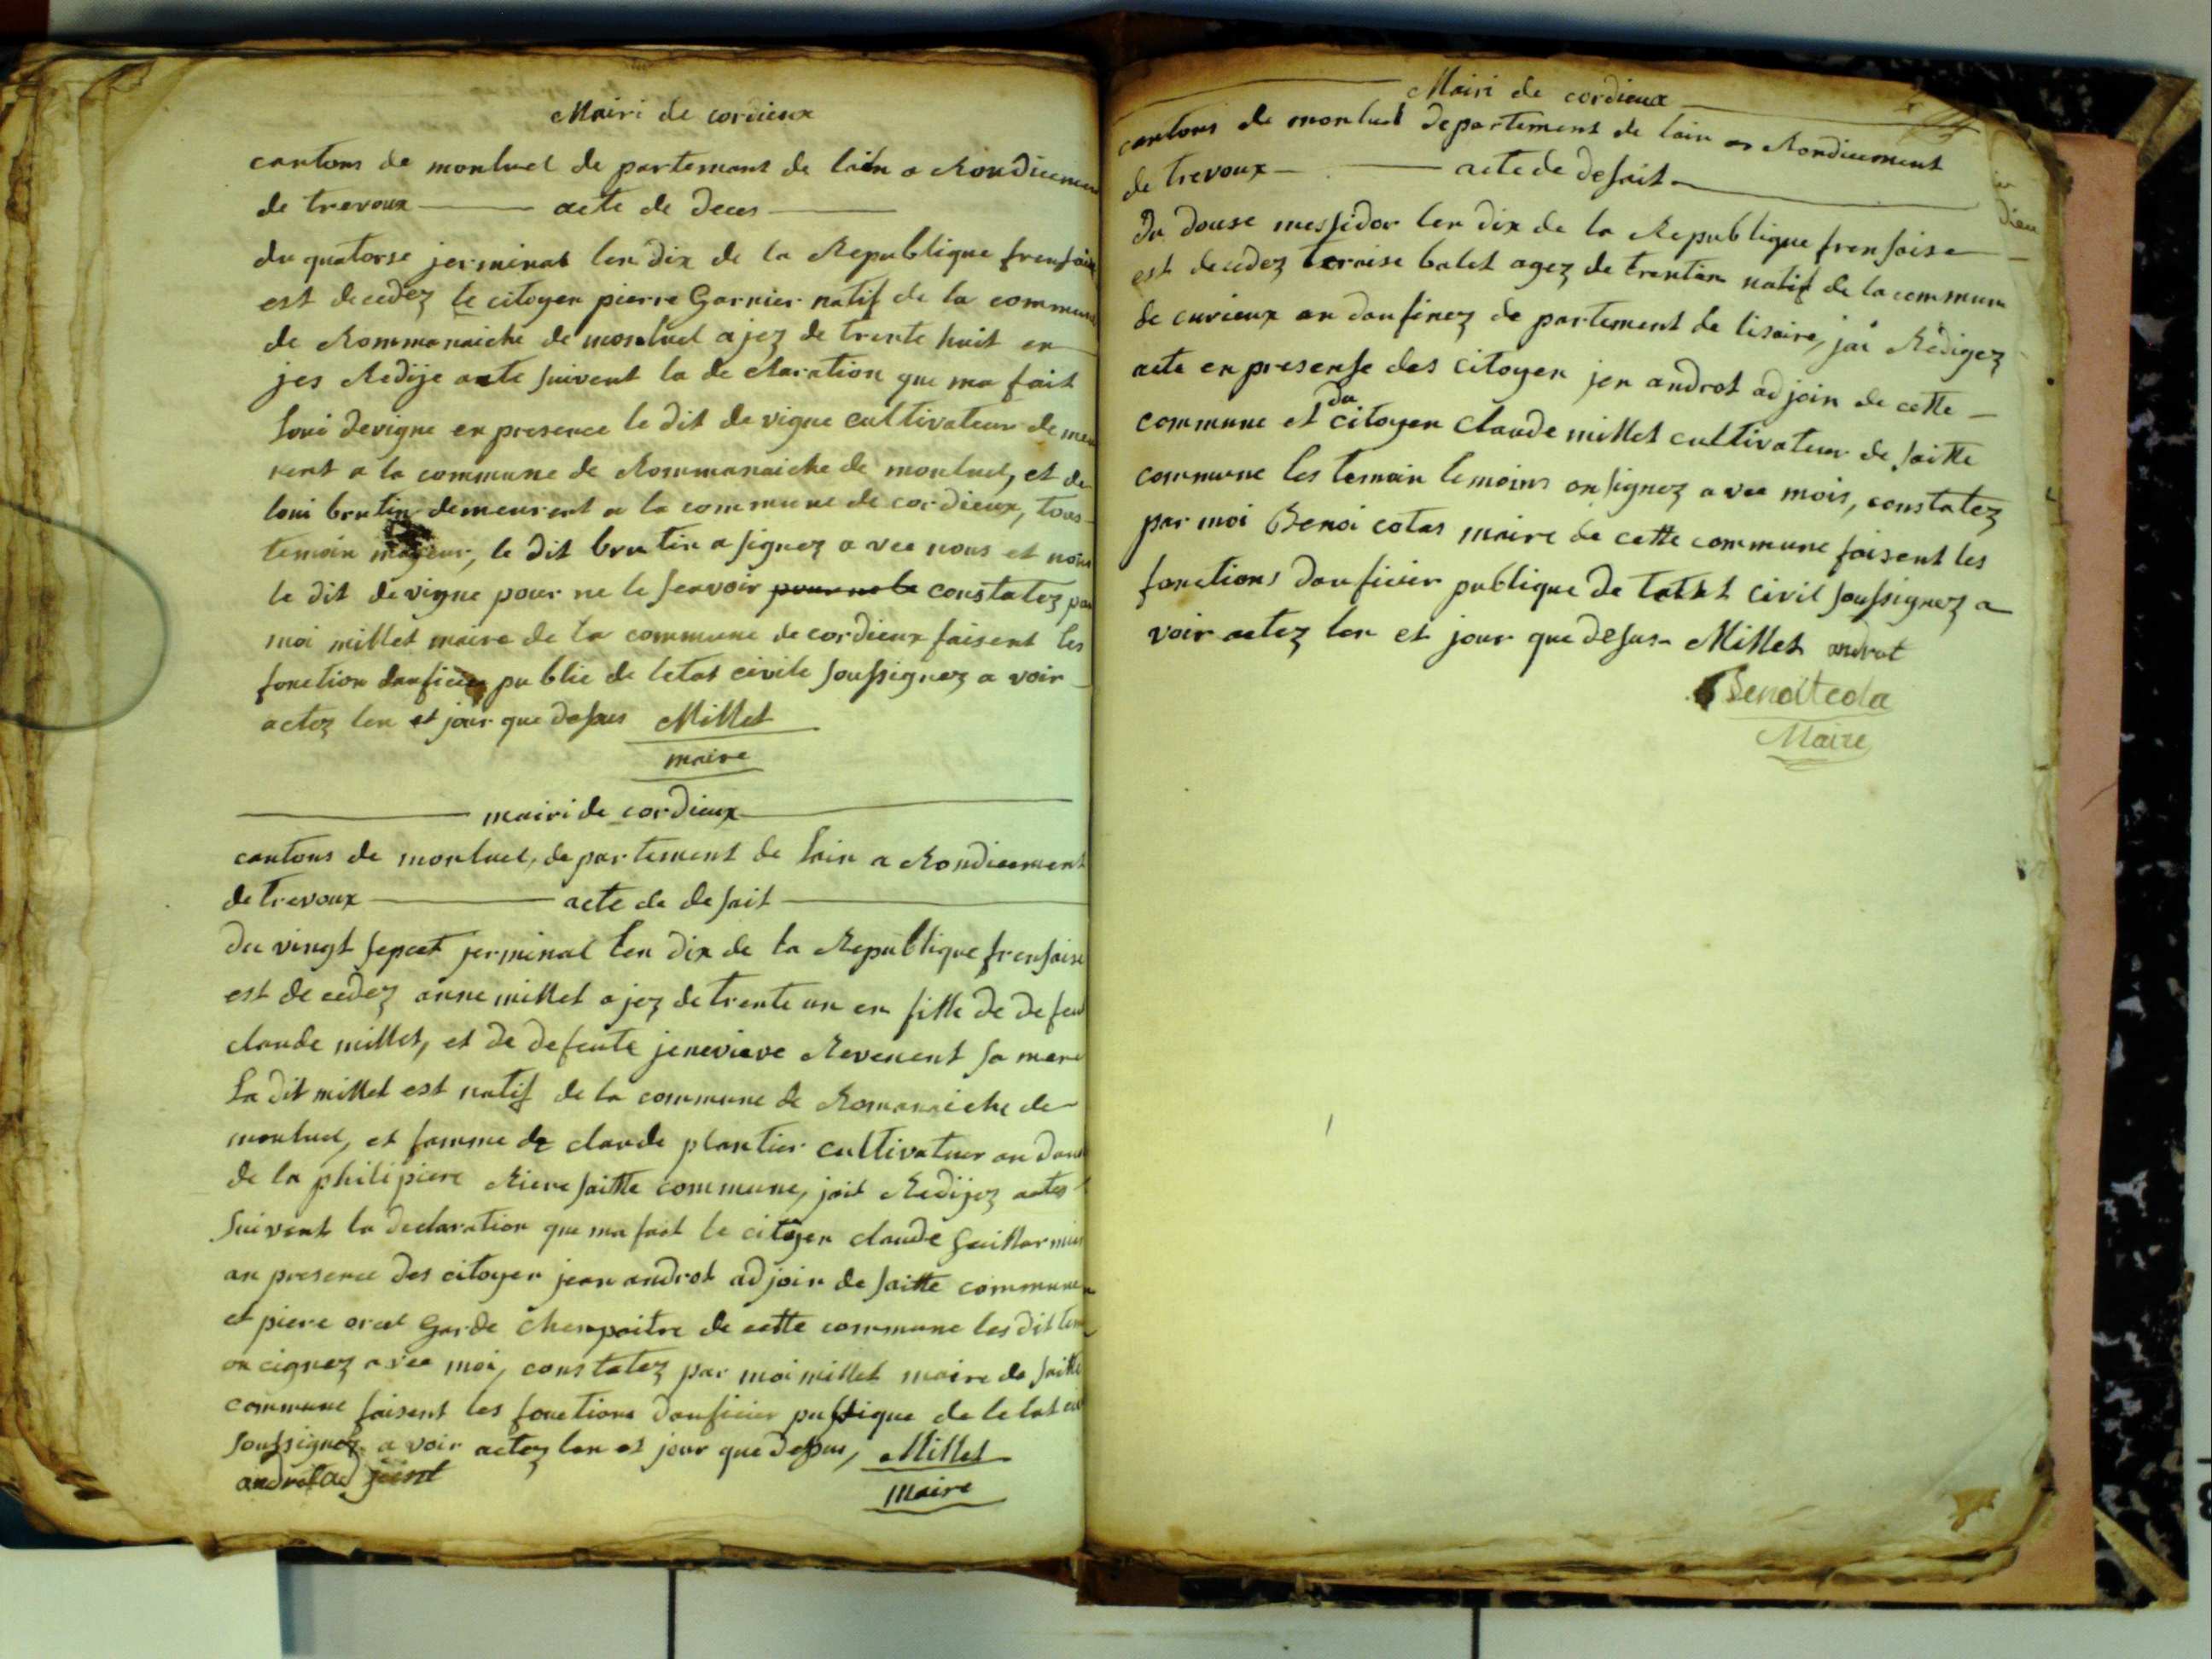 Mairi de cordieux
cantons de montluel de partemant de lain a Rondicemen
de trevoux acte de deces
du quatorse jerminal len dix de la Republique frensaise
est decedez le citoyen pierre Garnier natif de la commune
de Rommanaiche de montluel ajez de trente huit en
jes Redije acte suivent la de claration que ma fait
loui devigne en presence le dit de vigne cultivateur de meu
rent a la commune de Rommanaiche de montluel, et de
loui brutin demeurent a la commune de cordieux, tous
temoin mageur, le dit brutin a signez a vec nous et non
le dit devigne pour ne le scavoir pour ne le constatez par
moi millet maire de la commune de cordieux faisent les
fonction dauficier public de letat civile soussignez a voir
actez len et jour que desus Millet
maire
mairi de cordieux
cantons de montluel, departement de lain a Rondicement
de trevoux acte de desait
du vingt sepcet jerminal len dix de la Republique frensaise
est de cedez anne millet ajez de trente un en fille de defeu
claude millet, et de defeute jenevieve Revenent sa mere
La dit millet est natif de la commune de Romanaiche de
montluel, et famme de claude plantier cultivatuer au dom
de la philipiere Riere saitte commune, jait Redijez actes
suivent la declaration que ma fait le citoyen claude
an presence des citoyen jean androt adjoin de saitte commune
et piere orcel Garde chenpaitre de cette commune les dit tem
on cignez a vec moi, constatez par moi millet maire de saitte
commune faisent les fonctions dauficier publique de le tat civi
soussignez a voir actez len et jour que desus, Millet
androt ad joint maire
Mairi de cordieux
cantons de montluel departement de lain a Rondicement
de trevoux acte de desait
du douse messidor len dix de la Republique frensaise
est decedez teraise balet agez de trentan natif de la commune
de curieux an daufinez de partement de lisaire, jai Redigez
acte en presense des citoyen jen androt adjoin de cette
commune et du citoyen claude millet cultivateur de saitte
commune les temain temoins on signez a vec mois, constatez
par moi Benoi cotas maire de cette commune faisent les
fonctions dauficier publique de latet civil soussignez a
voir actez len et jour que desus Millet androt
Benoit cota
Maire